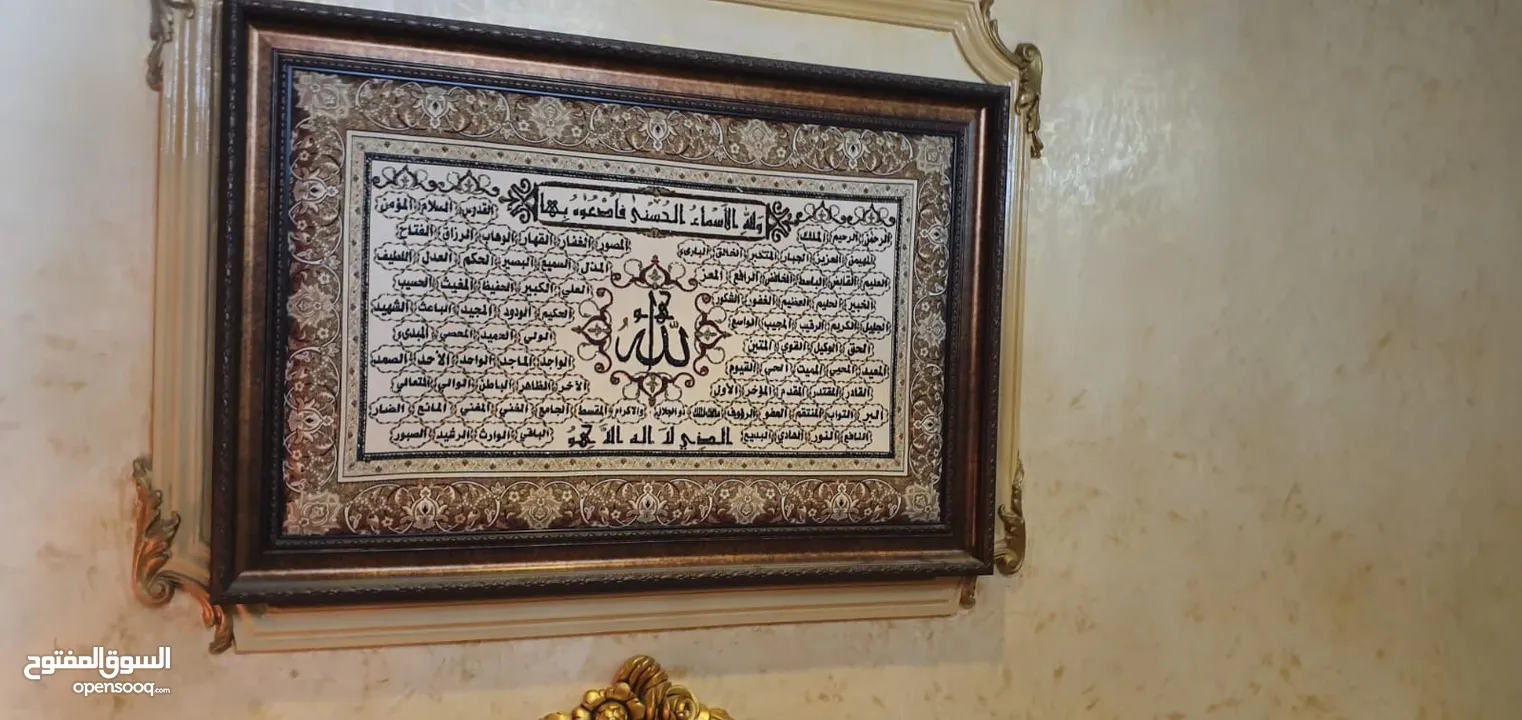 ولله الأسماء الحسنى فادعوه بها
الرحمن الرحيم الملك القدوس السلام المؤمن
المهيمن العزيز الجبار المتكبر الخالق البارىء المصور الغفار القهار الوهاب الرزاق الفتاح
العليم القابض الباسط الخافض الرافع المعز المذل السميع البصير الحكم العدل اللطيف
الخبير الحليم العظيم الغفور الشكور العلي الكبير الحفيظ المغيث الحسيب
الجليل الكريم الرقيب المجيب الواسع الحكيم الودود المجيد الباعث الشهيد
الحق الوكيل القوي المتين الولي الحميد المحصي المبدىء
المعيد المحيي المميت الحي القيوم الواجد الماجد الواحد الأحد الصمد
القادر المقتدر المقدم المؤخر الأول الآخر الظاهر الباطن الوالي المتعالي
البر التواب المنتقم العفو الرؤوف مالك الملك ذو الجلال والاكرام المقسط الجامع الغني المغني المانع الضار
النافع النور الهادي البديع الذي لا اله الا هو الباقي الوارث الرشيد الصبور
هو
الله
السوق المفتوح
opensooq.com